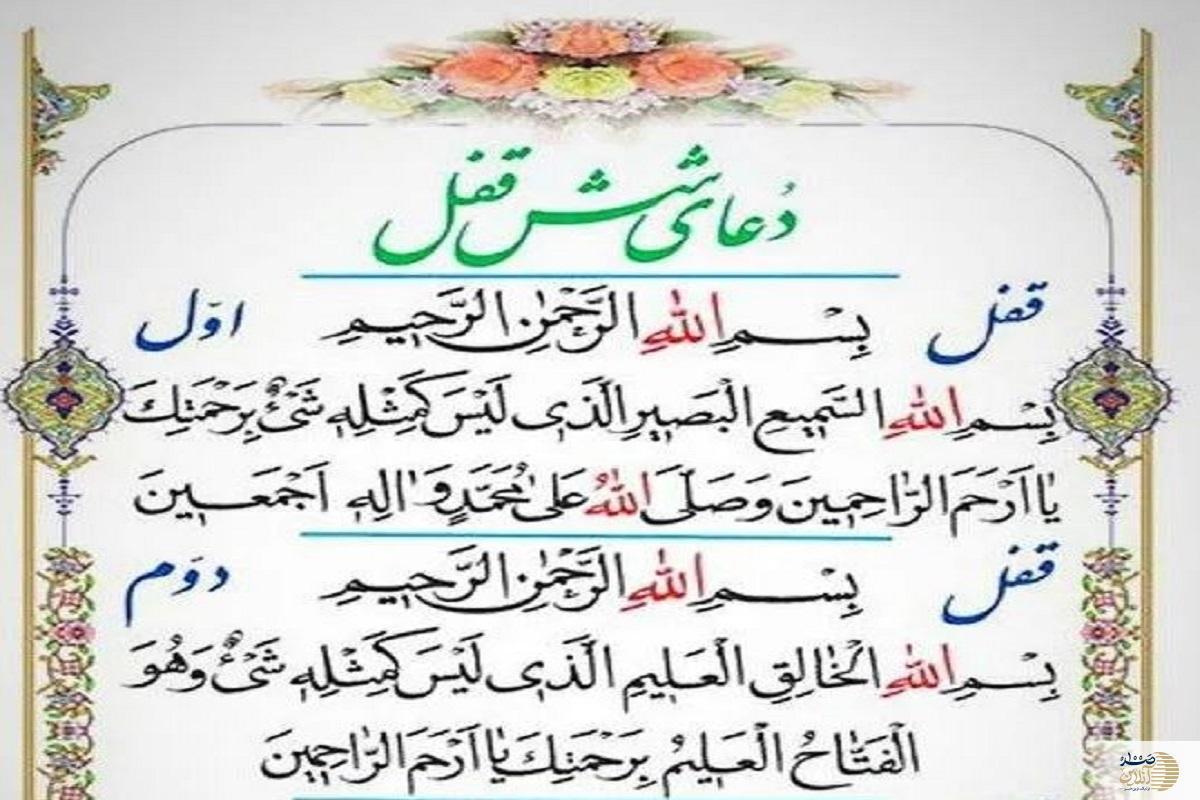 دُعای شش قفل
قفل بِسْمِ اللهِ الرَّحْمٰنِ الرَّحیمِ اوّل
بِسْمِ اللهِ السَّمیعِ الْبَصیرِ الَّذی لَیْسَ کَمِثْلِهٖ شَیْءٌ بِرَحْمَتِكَ
یٰا اَرْحَمَ الرّٰاحِمینَ وَ صَلَّی اللهُ عَلیٰ مُحَمَّدٍ وَ اٰلِهٖ اَجْمَعینَ
قفل بِسْمِ اللهِ الرَّحْمٰنِ الرَّحیمِ دوّم
بِسْمِ اللهِ الْخٰالِقِ الْعَلیمِ الَّذی لَیْسَ کَمِثْلِهٖ شَیْءٌ وَ هُوَ
الْفَتّٰاحُ الْعَلیمُ بِرَحْمَتِكَ یٰا اَرْحَمَ الرّٰاحِمینَ
صدا
آنلاین